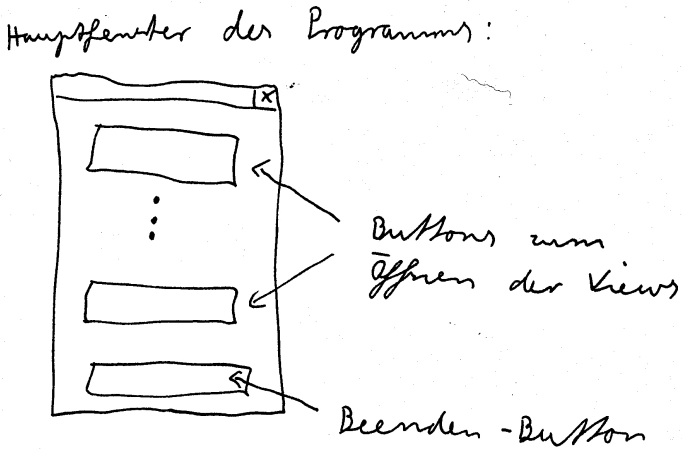 Hauptfenster des Programms:
x
Buttons zum
Öffnen der Views
Beenden-Button